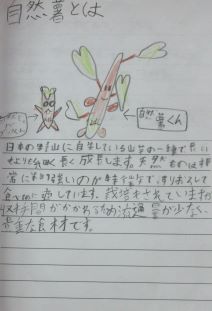 自然薯とは
自然薯くん
日本の野山に自生している山芋の一種で長い
もより細く長く成長します。天然ものは非
常に粘り強いのが特徴で、すりおろして
食べるに適しています。栽培もされていますが
収穫間がかかるため流通量が少ない、
貴重な食材です。